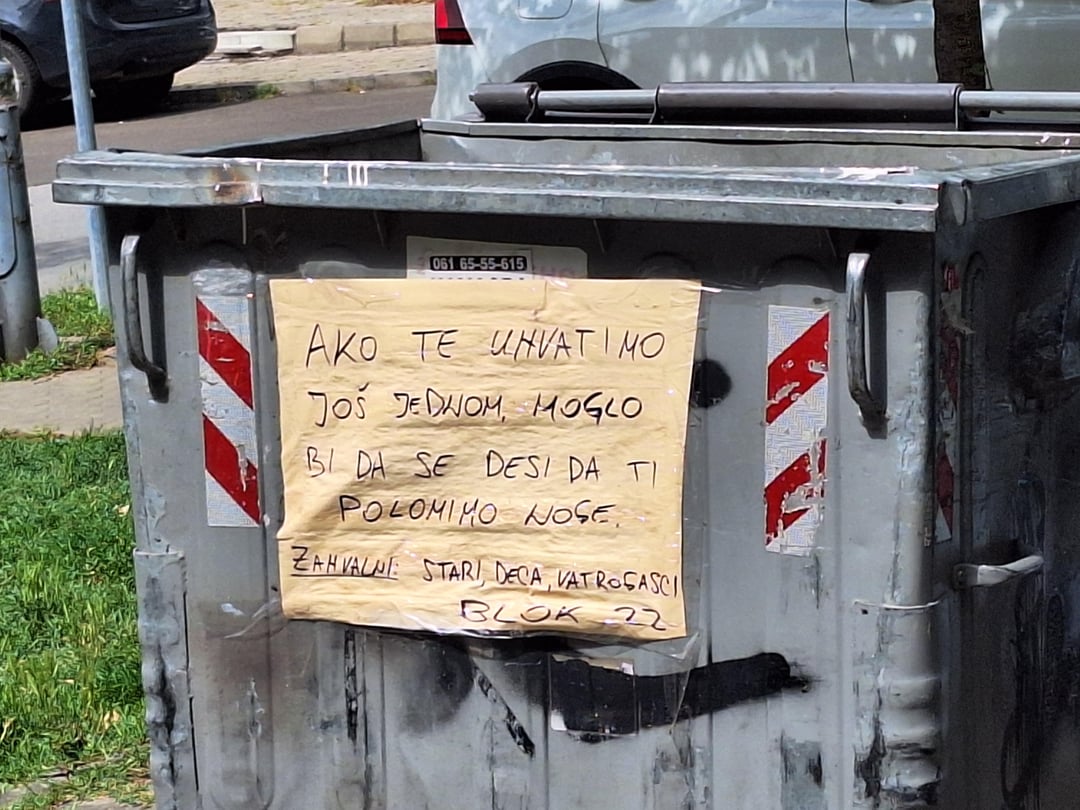 061 65-55-615
AKO TE UHVATIMO
JOŠ JEDNOM, MOGLO
BI DA SE DESI DA TI
POLOMIMO NOGE.
ZAHVALNI: STARI, DECA, VATROGASCI
BLOK 22